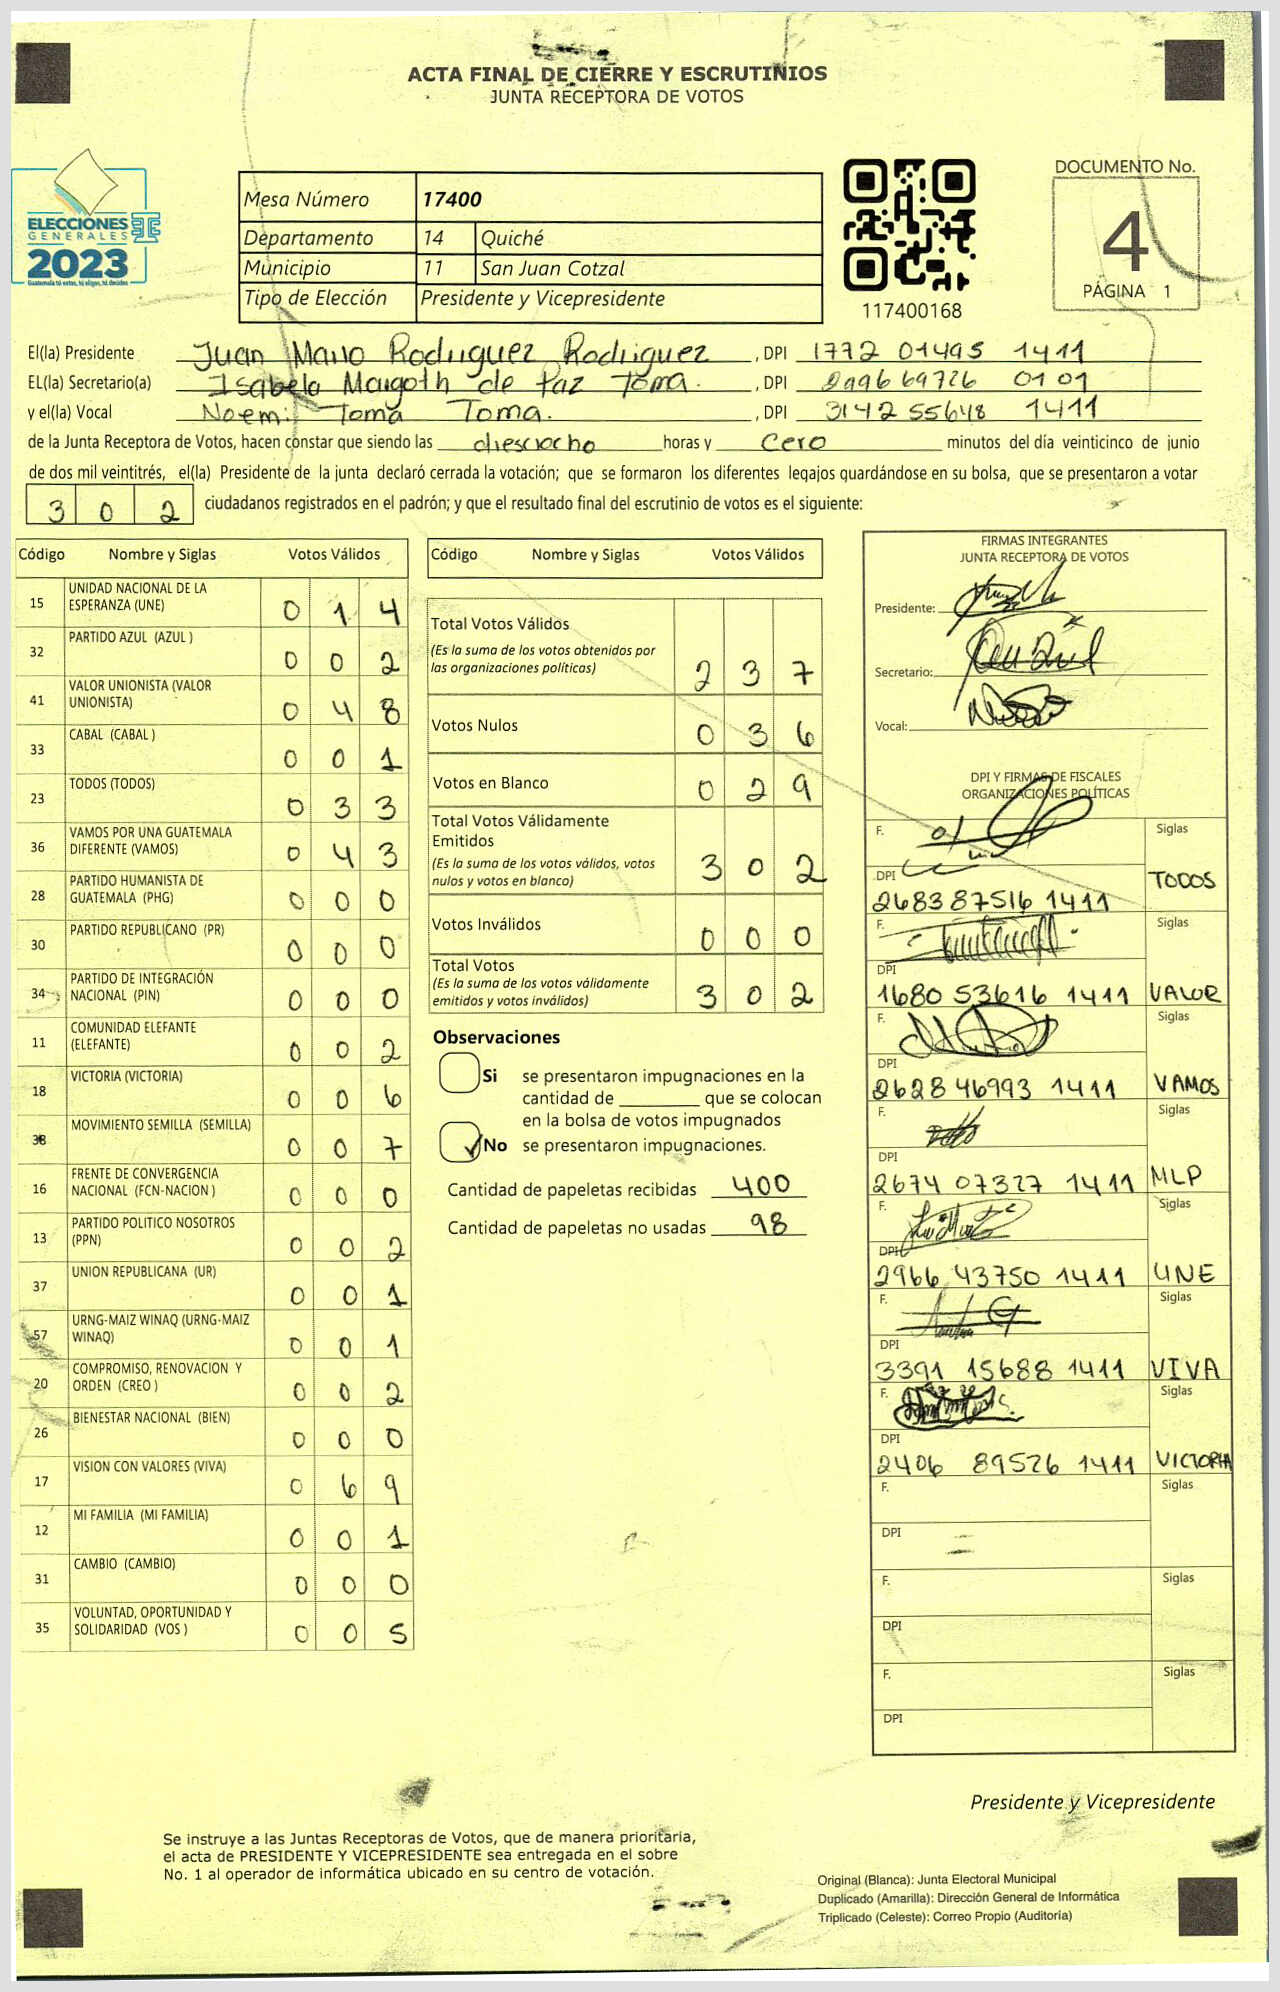 ACTA FINAL DE CIERRE Y ESCRUTINIOS
JUNTA RECEPTORA DE VOTOS
ELECCIONES
GENERALES
2023
Guatemala tú estas, tú eliges, tú decides
Mesa Número 17400
Departamento 14 Quiché
Municipio 11 San Juan Cotzal
Tipo de Elección Presidente y Vicepresidente
117400168
DOCUMENTO No.
4
PÁGINA 1
El(la) Presidente Juan Mario Rodriguez Rodriguez, DPI 1772 01495 1411
EL(la) Secretario(a) Isabela Margoth de Paz Toma., DPI 2996 69726 0101
y el(la) Vocal Noemi Toma Toma., DPI 3142 55648 1411
de la Junta Receptora de Votos, hacen constar que siendo las diesciocho horas y cero minutos del día veinticinco de junio
de dos mil veintitrés, el(la) Presidente de la junta declaró cerrada la votación; que se formaron los diferentes legajos guardándose en su bolsa, que se presentaron a votar
302 ciudadanos registrados en el padrón; y que el resultado final del escrutinio de votos es el siguiente:
Código Nombre y Siglas Votos Válidos
15 UNIDAD NACIONAL DE LA ESPERANZA (UNE) 0 1 4
32 PARTIDO AZUL (AZUL ) 0 0 2
41 VALOR UNIONISTA (VALOR UNIONISTA) 0 4 8
33 CABAL (CABAL ) 0 0 1
23 TODOS (TODOS) 0 3 3
36 VAMOS POR UNA GUATEMALA DIFERENTE (VAMOS) 0 4 3
28 PARTIDO HUMANISTA DE GUATEMALA (PHG) 0 0 0
30 PARTIDO REPUBLICANO (PR) 0 0 0
34 PARTIDO DE INTEGRACIÓN NACIONAL (PIN) 0 0 0
11 COMUNIDAD ELEFANTE (ELEFANTE) 0 0 2
18 VICTORIA (VICTORIA) 0 0 6
38 MOVIMIENTO SEMILLA (SEMILLA) 0 0 7
16 FRENTE DE CONVERGENCIA NACIONAL (FCN-NACION ) 0 0 0
13 PARTIDO POLITICO NOSOTROS (PPN) 0 0 2
37 UNION REPUBLICANA (UR) 0 0 1
57 URNG-MAIZ WINAQ (URNG-MAIZ WINAQ) 0 0 1
20 COMPROMISO, RENOVACION Y ORDEN (CREO ) 0 0 2
26 BIENESTAR NACIONAL (BIEN) 0 0 0
17 VISION CON VALORES (VIVA) 0 6 9
12 MI FAMILIA (MI FAMILIA) 0 0 1
31 CAMBIO (CAMBIO) 0 0 0
35 VOLUNTAD, OPORTUNIDAD Y SOLIDARIDAD (VOS ) 0 0 5
Código Nombre y Siglas Votos Válidos
Total Votos Válidos
(Es la suma de los votos obtenidos por
las organizaciones políticas) 2 3 7
Votos Nulos 0 3 6
Votos en Blanco 0 2 9
Total Votos Válidamente
Emitidos
(Es la suma de los votos válidos, votos
nulos y votos en blanco) 3 0 2
Votos Inválidos 0 0 0
Total Votos
(Es la suma de los votos válidamente
emitidos y votos inválidos) 3 0 2
Observaciones
Si se presentaron impugnaciones en la
cantidad de ________ que se colocan
en la bolsa de votos impugnados
No se presentaron impugnaciones.
Cantidad de papeletas recibidas 400
Cantidad de papeletas no usadas 98
FIRMAS INTEGRANTES
JUNTA RECEPTORA DE VOTOS
Presidente:
Secretario:
Vocal:
DPI Y FIRMAS DE FISCALES
ORGANIZACIONES POLÍTICAS
F. Siglas
DPI TODOS
2683 87516 1411
F. Siglas
DPI
1680 53616 1411 VALOR
F. Siglas
DPI
2628 46993 1411 VAMOS
F. Siglas
DPI
2674 07327 1411 MLP
F. Siglas
DPI
2966 43750 1411 UNE
F. Siglas
DPI
3391 15688 1411 VIVA
F. Siglas
DPI
2406 89526 1411 VICTORIA
F. Siglas
DPI
F. Siglas
DPI
F. Siglas
DPI
Presidente y Vicepresidente
Se instruye a las Juntas Receptoras de Votos, que de manera prioritaria,
el acta de PRESIDENTE Y VICEPRESIDENTE sea entregada en el sobre
No. 1 al operador de informática ubicado en su centro de votación.
Original (Blanca): Junta Electoral Municipal
Duplicado (Amarilla): Dirección General de Informática
Triplicado (Celeste): Correo Propio (Auditoría)